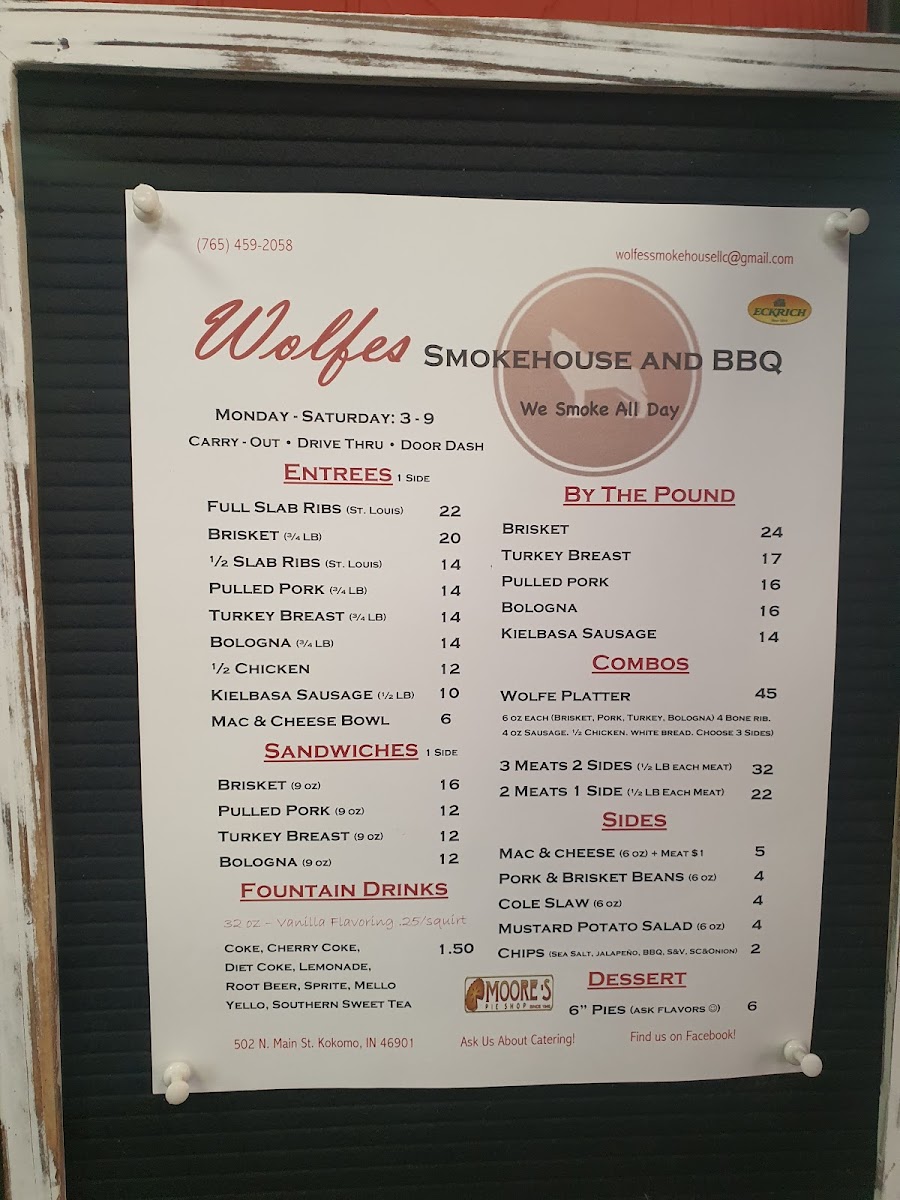 (765) 459-2058
wolfessmokehousellc@gmail.com
ECKRICH
Wolfes SMOKEHOUSE AND BBQ
We Smoke All Day
MONDAY - SATURDAY: 3 - 9
CARRY - OUT • DRIVE THRU • DOOR DASH
ENTREES 1 SIDE
FULL SLAB RIBS (ST. LOUIS) 22
BRISKET (¾ LB) 20
½ SLAB RIBS (ST. LOUIS) 14
PULLED PORK (¾ LB) 14
TURKEY BREAST (¾ LB) 14
BOLOGNA (¾ LB) 14
½ CHICKEN 12
KIELBASA SAUSAGE (½ LB) 10
MAC & CHEESE BOWL 6
SANDWICHES 1 SIDE
BRISKET (9 OZ) 16
PULLED PORK (9 OZ) 12
TURKEY BREAST (9 OZ) 12
BOLOGNA (9 OZ) 12
FOUNTAIN DRINKS
32 oz – Vanilla Flavoring .25/squirt
COKE, CHERRY COKE, 1.50
DIET COKE, LEMONADE,
ROOT BEER, SPRITE, MELLO
YELLO, SOUTHERN SWEET TEA
BY THE POUND
BRISKET 24
TURKEY BREAST 17
PULLED PORK 16
BOLOGNA 16
KIELBASA SAUSAGE 14
COMBOS
WOLFE PLATTER 45
6 OZ EACH (BRISKET, PORK, TURKEY, BOLOGNA) 4 BONE RIB.
4 OZ SAUSAGE. ½ CHICKEN. WHITE BREAD. CHOOSE 3 SIDES)
3 MEATS 2 SIDES (½ LB EACH MEAT) 32
2 MEATS 1 SIDE (½ LB EACH MEAT) 22
SIDES
MAC & CHEESE (6 OZ) + MEAT $1 5
PORK & BRISKET BEANS (6 OZ) 4
COLE SLAW (6 OZ) 4
MUSTARD POTATO SALAD (6 OZ) 4
CHIPS (SEA SALT, JALAPEÑO, BBQ, S&V, SC&ONION) 2
DESSERT
MOORE'S
PIE SHOP
6” PIES (ASK FLAVORS ☺) 6
502 N. Main St. Kokomo, IN 46901
Ask Us About Catering!
Find us on Facebook!